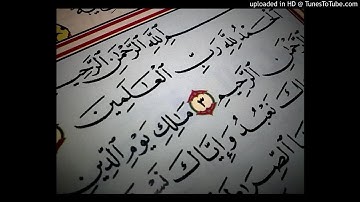 uploaded in HD @ TunesToTube.com
ٱللَّهِ ٱلرَّحْمَٰنِ ٱلرَّحِيمِ
ٱلْحَمْدُ لِلَّهِ رَبِّ ٱلْعَٰلَمِينَ
ٱلرَّحْمَٰنِ ٱلرَّحِيمِ ٣ مَٰلِكِ يَوْمِ ٱلدِّينِ
نَعْبُدُ وَإِيَّاكَ
ٱلصِّرَٰطَ